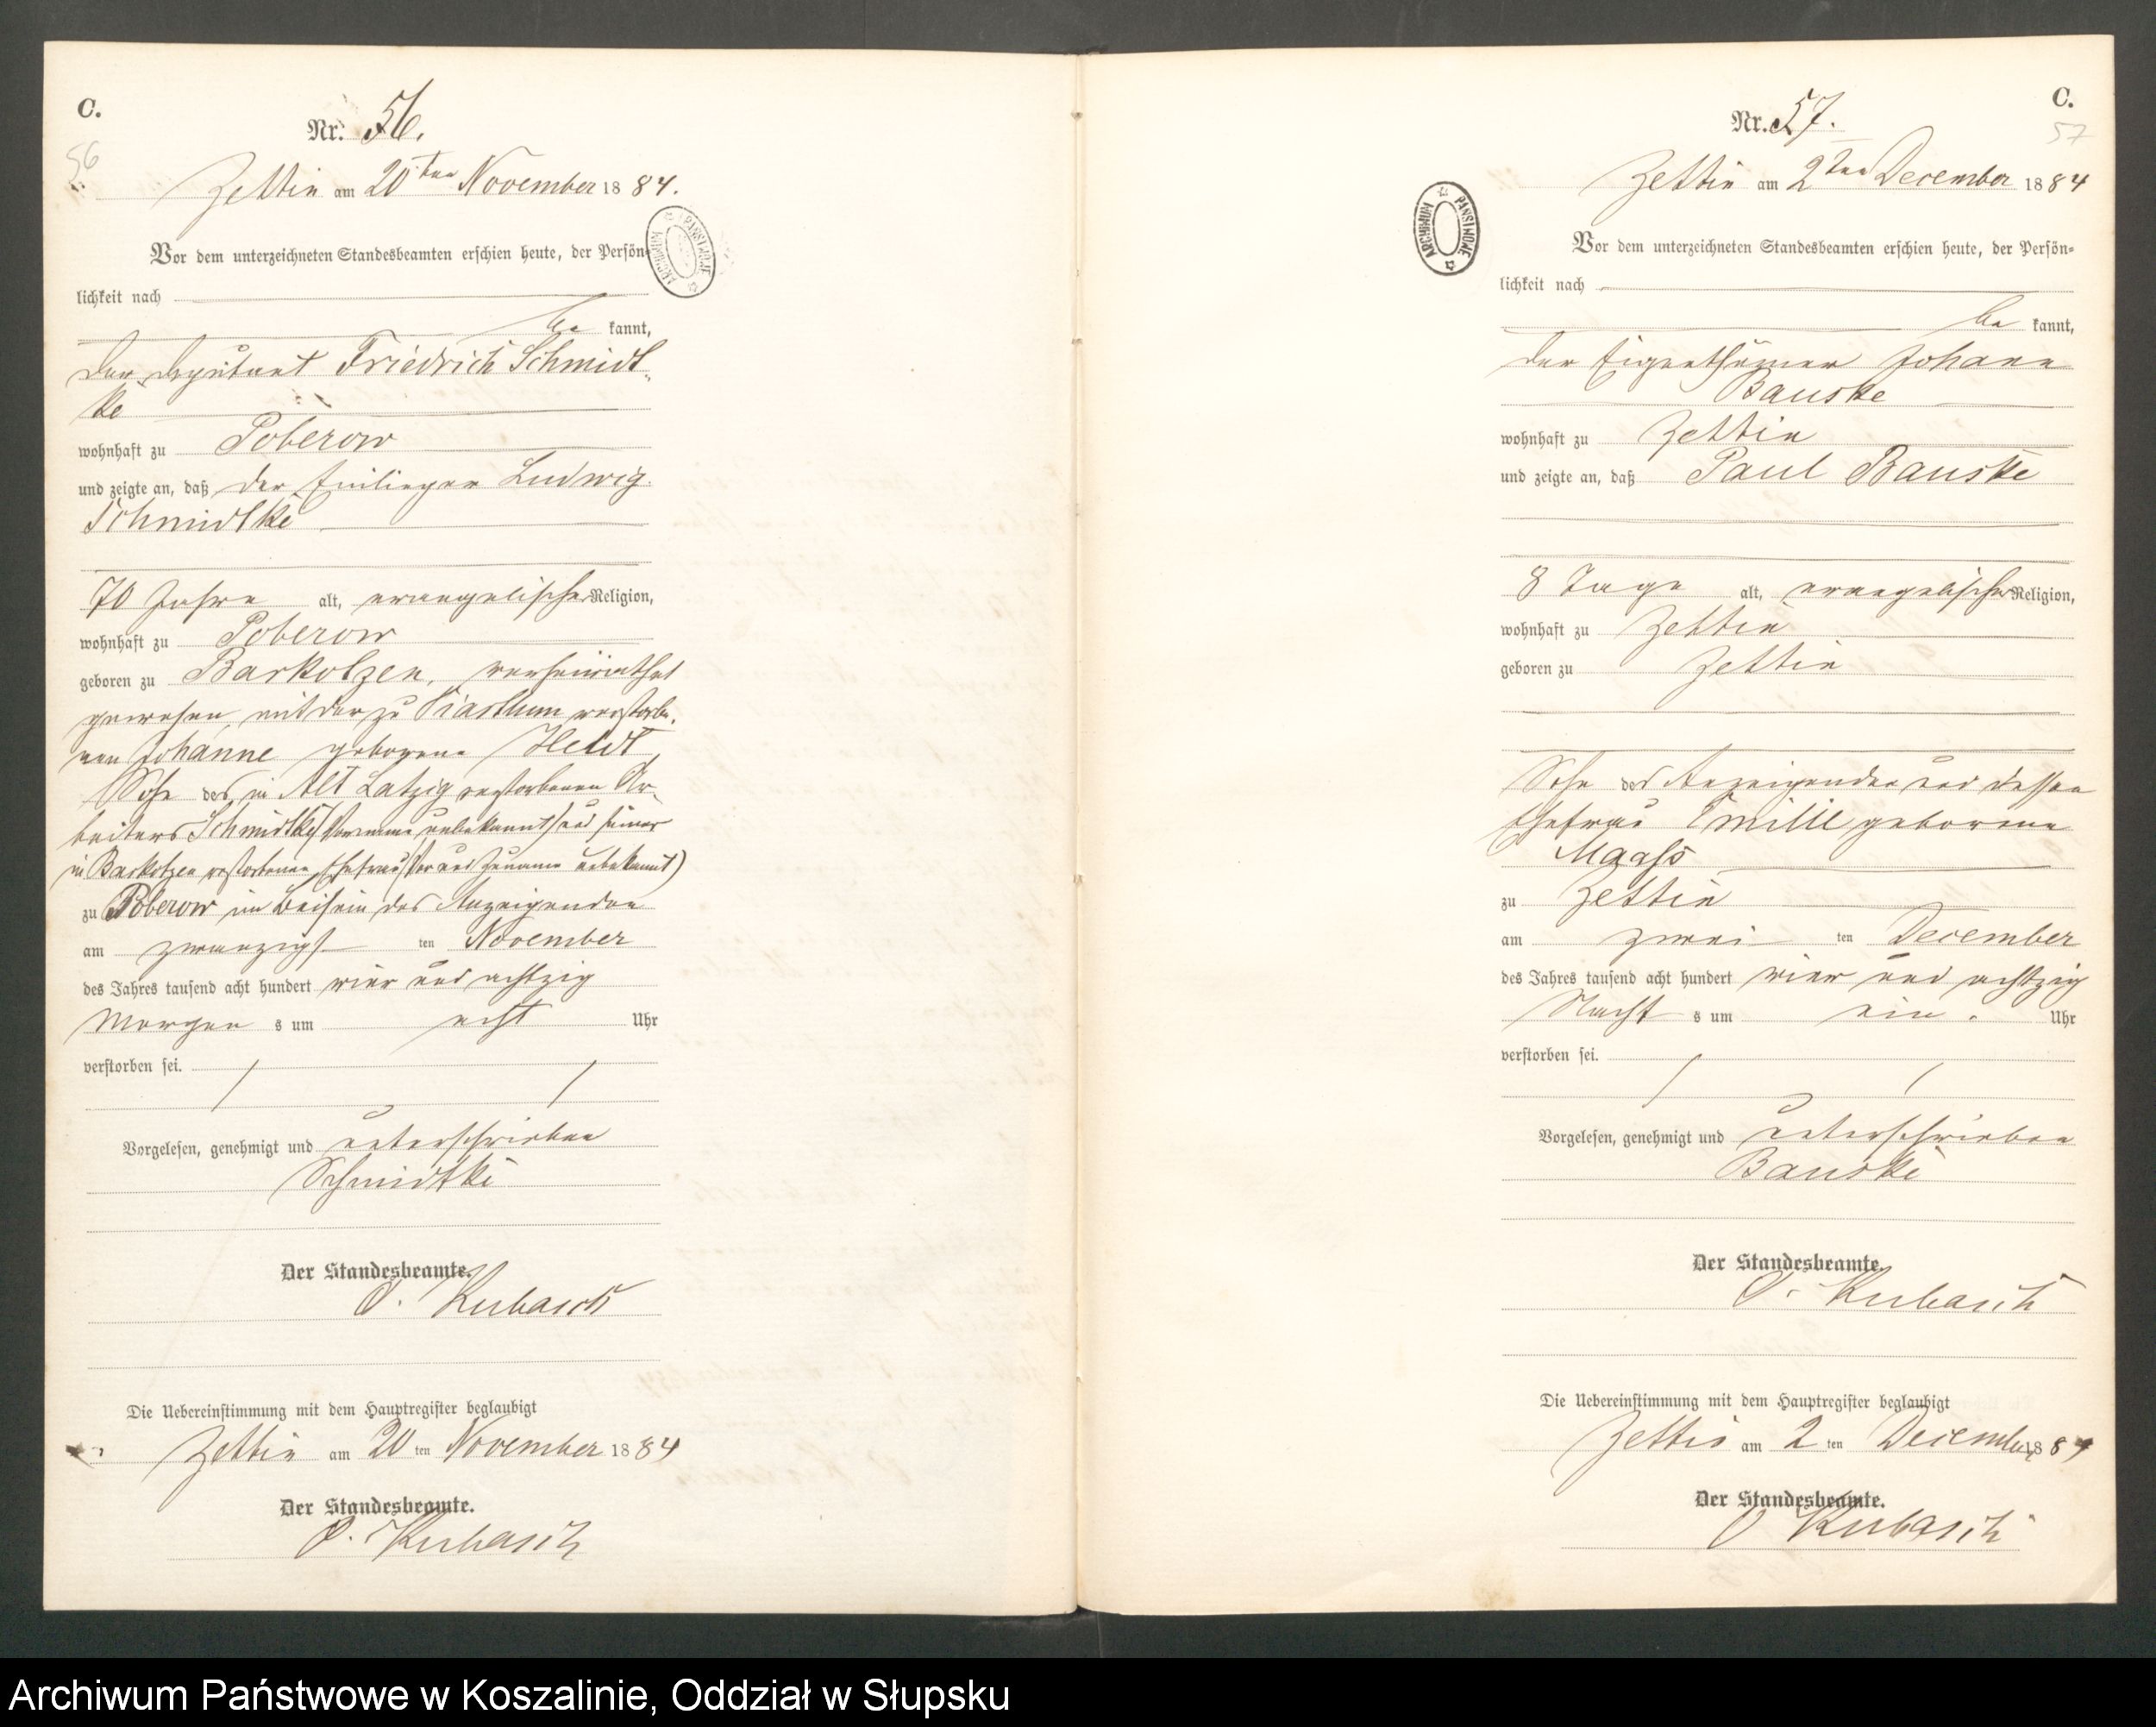 C.
Nr. 56.
56
Zettin am 20ten November 1884.
ARCHIWUM PAŃSTWOWE
Vor dem unterzeichneten Standesbeamten erschien heute, der Persön-
lichkeit nach
be kannt,
der Deputant Friedrich Schmidt-
ke
wohnhaft zu Poberow
und zeigte an, daß der Einlieger Ludwig
Schmidtke
70 Jahre alt, evangelischer Religion,
wohnhaft zu Poberow
geboren zu Barkotzen, verheirathet
gewesen mit der zu verstorbe-
nen Johanne geborene Heldt,
Sohn des in Alt Latzig verstorbenen Ar-
beiters Schmidtke (Vorname unbekannt) und seiner
in Barkotzen verstorbenen Ehefrau (Vor und Zuname unbekannt)
zu Poberow im Beisein des Anzeigenden
am zwanzigsten November
des Jahres tausend acht hundert vier und achtzig
Morgens um acht Uhr
verstorben sei.
Vorgelesen, genehmigt und unterschrieben
Schmidtke
Der Standesbeamte.
O. Kubasch
Die Uebereinstimmung mit dem Hauptregister beglaubigt
Zettin am 20ten November 1884
Der Standesbeamte.
O. Kubasch
C.
Nr. 57.
57
Zettin am 2ten December 1884
ARCHIWUM PAŃSTWOWE
Vor dem unterzeichneten Standesbeamten erschien heute, der Persön-
lichkeit nach
be kannt,
der Eigenthümer Johann
Bauske
wohnhaft zu Zettin
und zeigte an, daß Paul Bauske
8 Tage alt, evangelischer Religion,
wohnhaft zu Zettin
geboren zu Zettin
Sohn des Anzeigenden und dessen
Ehefrau Emilie geborene
Maass
zu Zettin
am zweiten December
des Jahres tausend acht hundert vier und achtzig
Nachts um ein Uhr
verstorben sei.
Vorgelesen, genehmigt und unterschrieben
Bauske
Der Standesbeamte.
O. Kubasch
Die Uebereinstimmung mit dem Hauptregister beglaubigt
Zettin am 2ten December 1884
Der Standesbeamte.
O Kubasch
Archiwum Państwowe w Koszalinie, Oddział w Słupsku